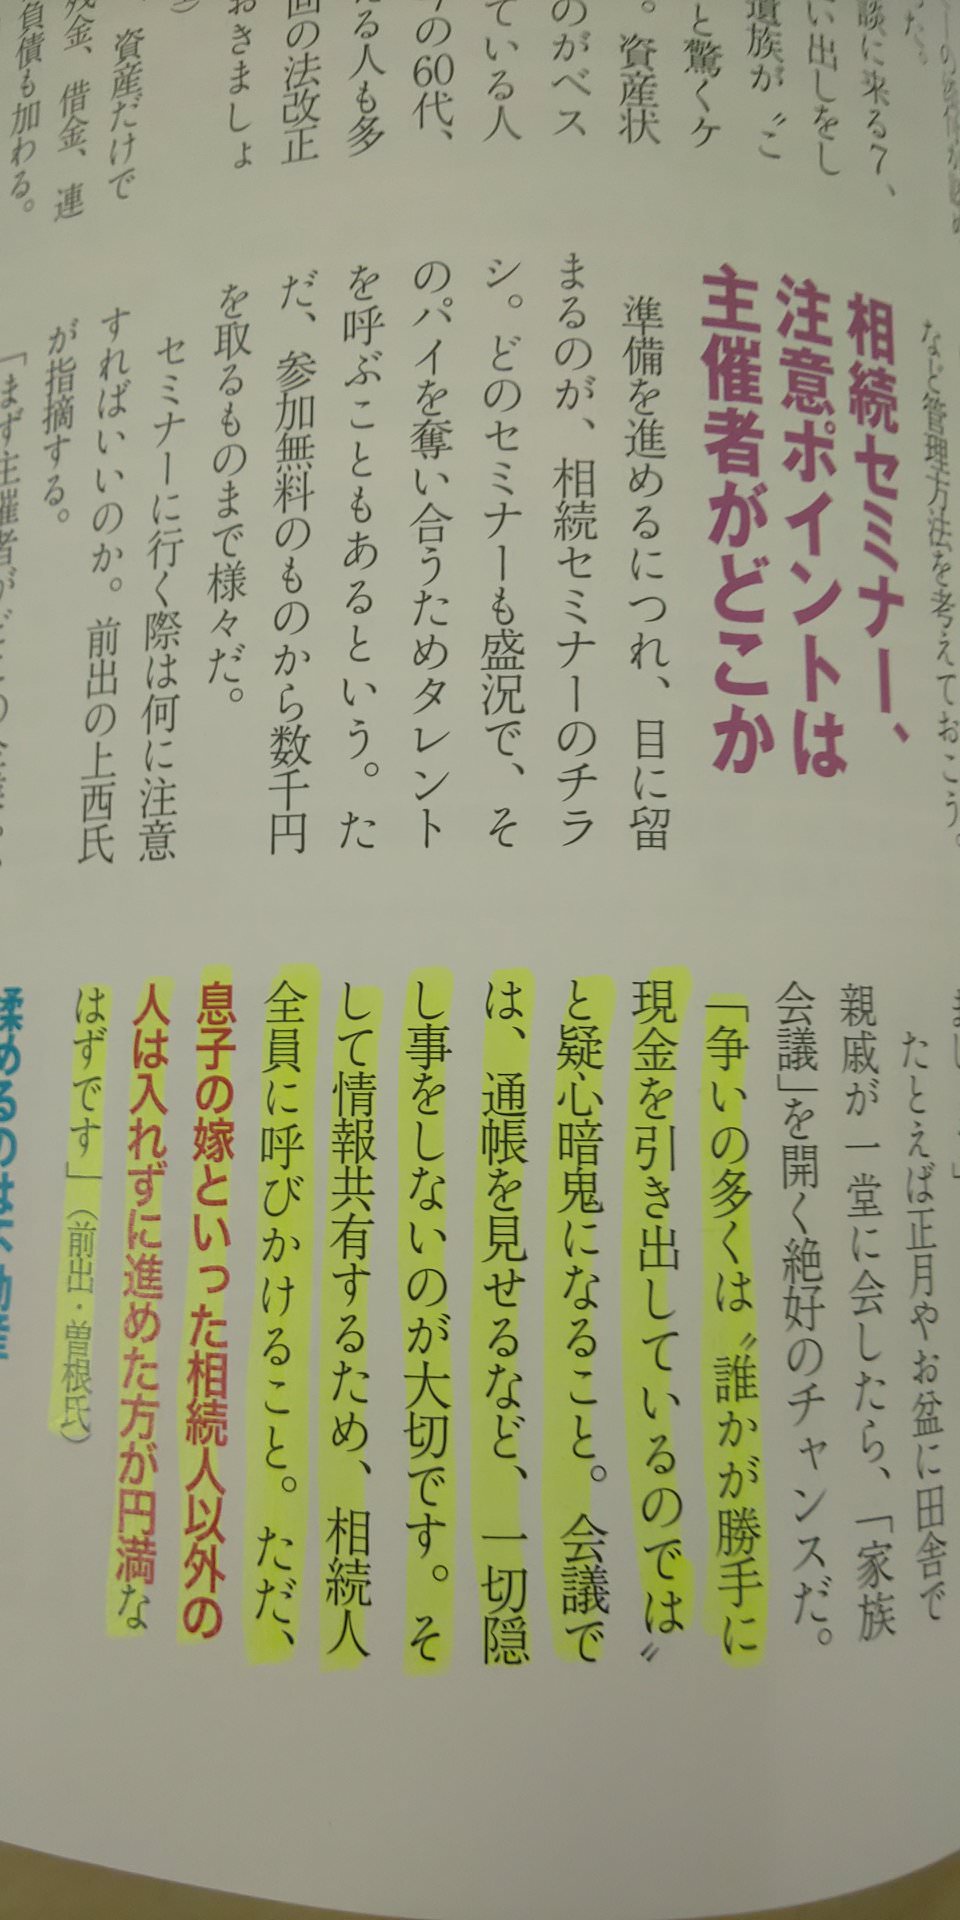 談に来る7、
い出しをし
遺族が〝こ
と驚くケ
。資産状
のがベス
ている人
の60代、
る人も多
回の法改正
おきましょ
資産だけで
残金、借金、連
負債も加わる。
など管理方法を考えておこう。
相続セミナー、
注意ポイントは
主催者がどこか
準備を進めるにつれ、目に留
まるのが、相続セミナーのチラ
シ。どのセミナーも盛況で、そ
のパイを奪い合うためタレント
を呼ぶこともあるという。た
だ、参加無料のものから数千円
を取るものまで様々だ。
セミナーに行く際は何に注意
すればいいのか。前出の上西氏
が指摘する。
「まず主催者がどこの
たとえば正月やお盆に田舎で
親戚が一堂に会したら、「家族
会議」を開く絶好のチャンスだ。
「争いの多くは〝誰かが勝手に
現金を引き出しているのでは〟
と疑心暗鬼になること。会議で
は、通帳を見せるなど、一切隠
し事をしないのが大切です。そ
して情報共有するため、相続人
全員に呼びかけること。ただ、
息子の嫁といった相続人以外の
人は入れずに進めた方が円満な
はずです」（前出・曽根氏）
揉めるのは不動産